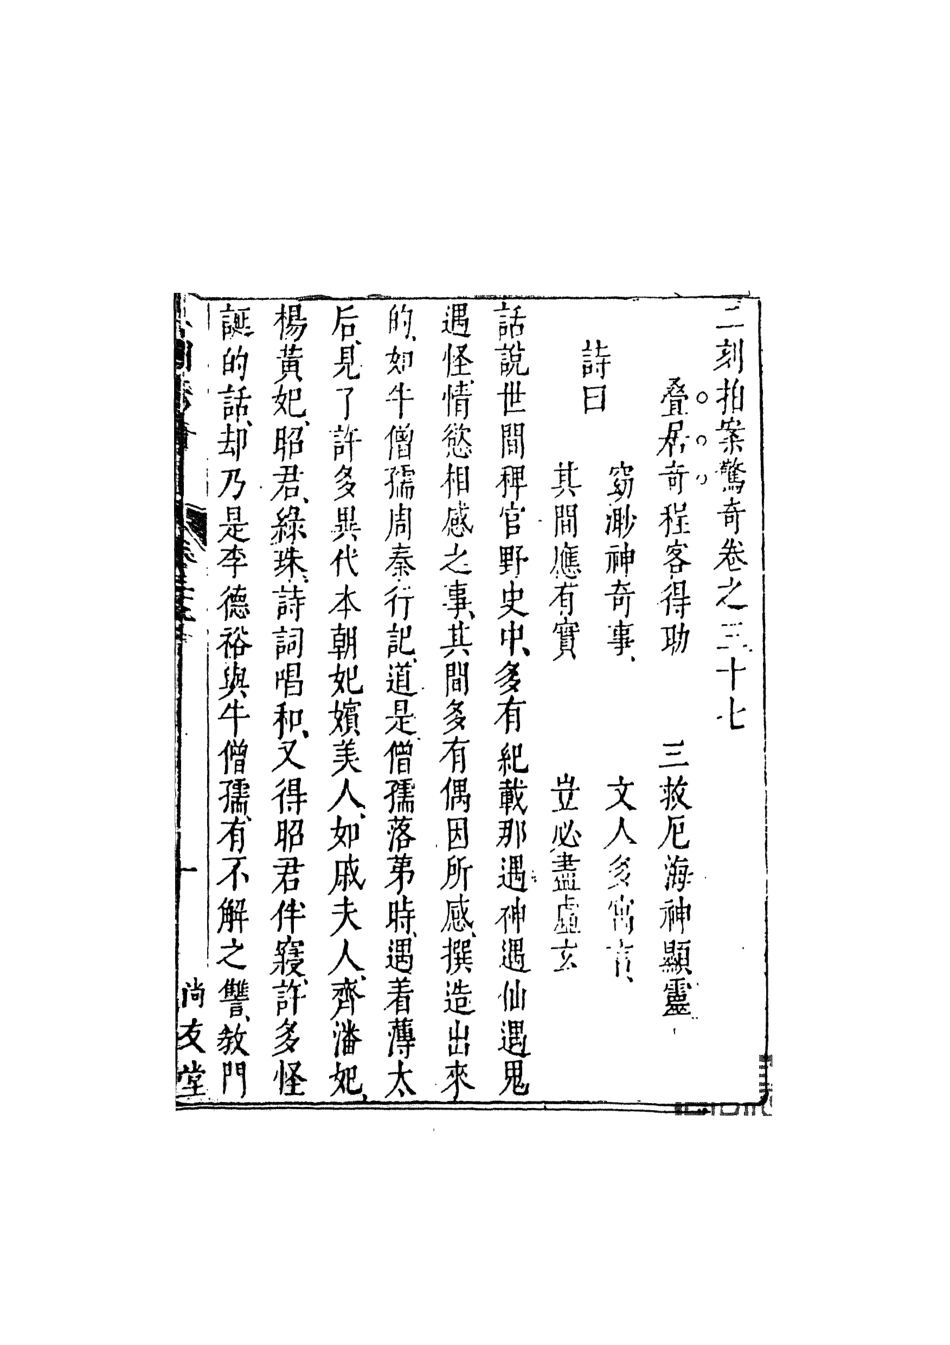 二刻拍案驚奇卷之三十七
疊居奇程客得助　三救厄海神顯靈
詩曰
窈渺神奇事、　文人多寓言、
其間應有實　豈必盡虛玄
話說世間稗官野史中、多有紀載那遇神遇仙遇鬼
遇怪、情慾相感之事、其間多有偶因所感、撰造出來
的、如牛僧孺周秦行記、道是僧孺落第時、遇着薄太
后、見了許多異代本朝妃嬪美人、如戚夫人、齊潘妃、
楊貴妃、昭君、綠珠、詩詞唱和、又得昭君伴寢、許多怪
誕的話、却乃是李德裕與牛僧孺、有不解之讐、教門
尚友堂